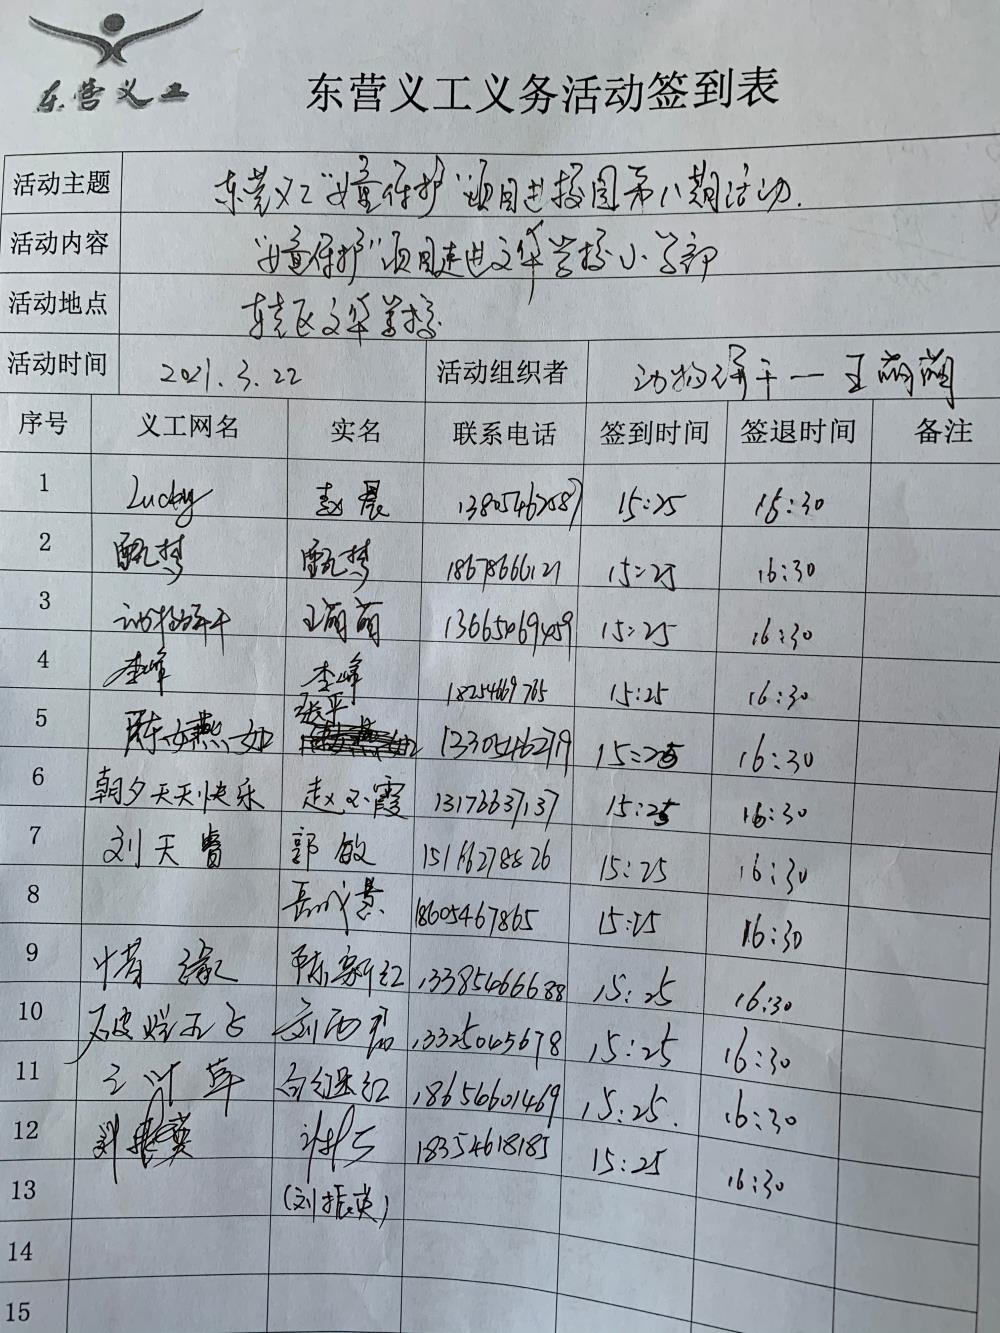 东营义工
东营义工义务活动签到表
活动主题 东营义工"女童保护"项目进校园第八期活动.
活动内容 "女童保护"项目走进文华学校小学部
活动地点 东营区文华学校
活动时间 2021.3.22 活动组织者 动物饼干一王萌萌
序号 义工网名 实名 联系电话 签到时间 签退时间 备注
1 Lucky 赵晨 13805462587 15:25 16:30
2 甄梦 甄梦 18678666121 15:25 16:30
3 动物饼干 王萌萌 13665469459 15:25 16:30
4 李峰 李峰 18254669765 15:25 16:30
张平
5 陈女燕如 1330546279 15:25 16:30
6 朝夕天天快乐 赵玉霞 13176637137 15:25 16:30
7 刘天睿 郭敏 15166278826 15:25 16:30
8 18605467865 15:25 16:30
9 惜缘 陈新红 13385466688 15:25 16:30
10 刘西磊 13325045678 15:25 16:30
11 三叶草 向继红 18656601469 15:25. 16:30
12 18354618185 15:25 16:30
13 (刘振英)
14
15